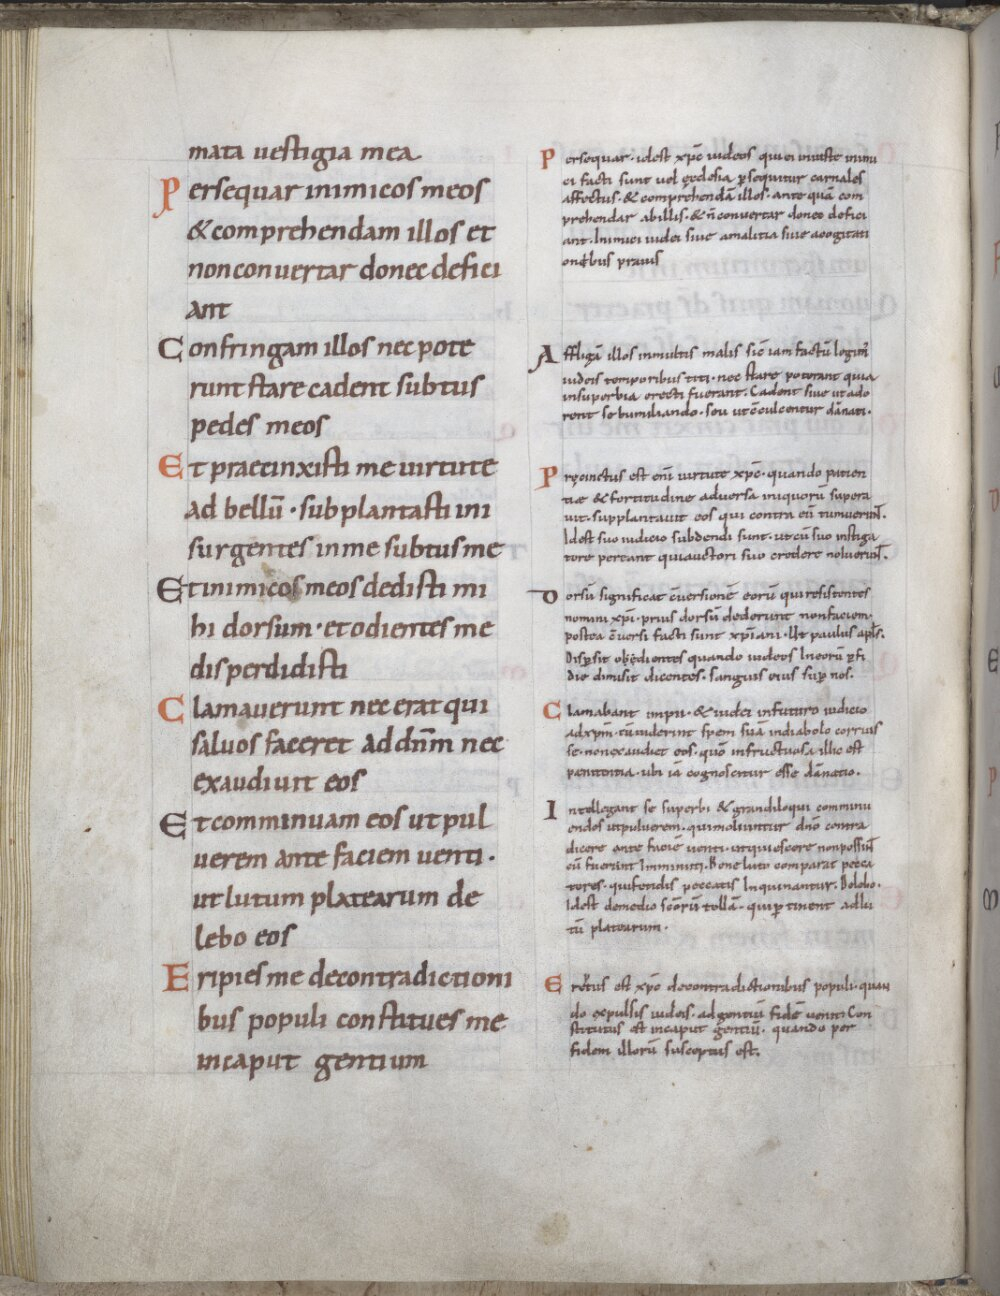 mata vestigia mea
Persequar inimicos meos
& comprehendam illos et
non convertar donec defici
ant
Confringam illos nec pote
runt stare cadent subtus
pedes meos
Et praecinxisti me virtute
ad bellū · subplantasti in
surgentes in me subtus me
Et inimicos meos dedisti mi
hi dorsum · et odientes me
disperdidisti
Clamaverunt nec erat qui
salvos faceret ad dn̄m nec
exaudivit eos
Et comminuam eos ut pul
verem ante faciem venti ·
ut lutum platearum de
lebo eos
Eripies me de contradictioni
bus populi constitues me
in caput gentium
Persequar · idest xp̄e iudeos qui ei iniuste inimi
ci facti sunt vel ęcclesia psequitur carnales
affectus · & comprehendā illos · ante quā com
prehendar ab illis · & n̄ convertar donec defici
ant · Inimici iudei sive a malitia sive a cogitati
onibus pravis
Affligā illos in multis malis sic̄ iam factū legim̄
iudeis temporibus titi · nec stare poterant quia
in superbia erecti fuerant · Cadent sive ut ado
rent se humiliando · seu ut c̄culcentur dānati ·
Pręcinctus est eni virtute xp̄c · quando patien
tiae & fortitudine adversa iniquorū supera
vit · supplantavit eos qui contra eū
Idest suo iudicio subdendi sunt · ut cū suo instiga
tore pereant quia auctori suo credere
Dorsū significat c̄versionē eorū qui resistentes
nomini xp̄i · prius dorsū dederunt non faciem ·
postea c̄versi facti sunt xp̄iani · Ut paulus apl̄s ·
Disp̄sit obędientes quando iudeos In eorū pfi
die dimisit dicentes · sanguis eius sup nos ·
Clamabant impii · & iudei in futuro iudicio
ad xp̄m · cū viderint spem suā in diabolo corruis
se · non exaudiet eos · quō infructuosa illic est
paenitentia · ubi iā cognoscitur esse dānatio ·
Intellegant se superbi & grandiloqui comminu
endos ut pulverem · qui moliuntur dn̄o contra
dicere ante faciē venti · ut quiescere non possin̄
cū fuerint Imminuti · Bene luto comparat pecca
tores · qui fendis peccatis Inquinantur · Delebo ·
Idest de medio sc̄orū tollā · qui ptinent ad lu
tū platearum ·
Ereptus est xp̄c de contradictionibus populi · quan
do expulsis iudeis · ad gentiū fidē venit Con
stitutus est in caput gentiū · quando per
fidem illorū susceptus est ·